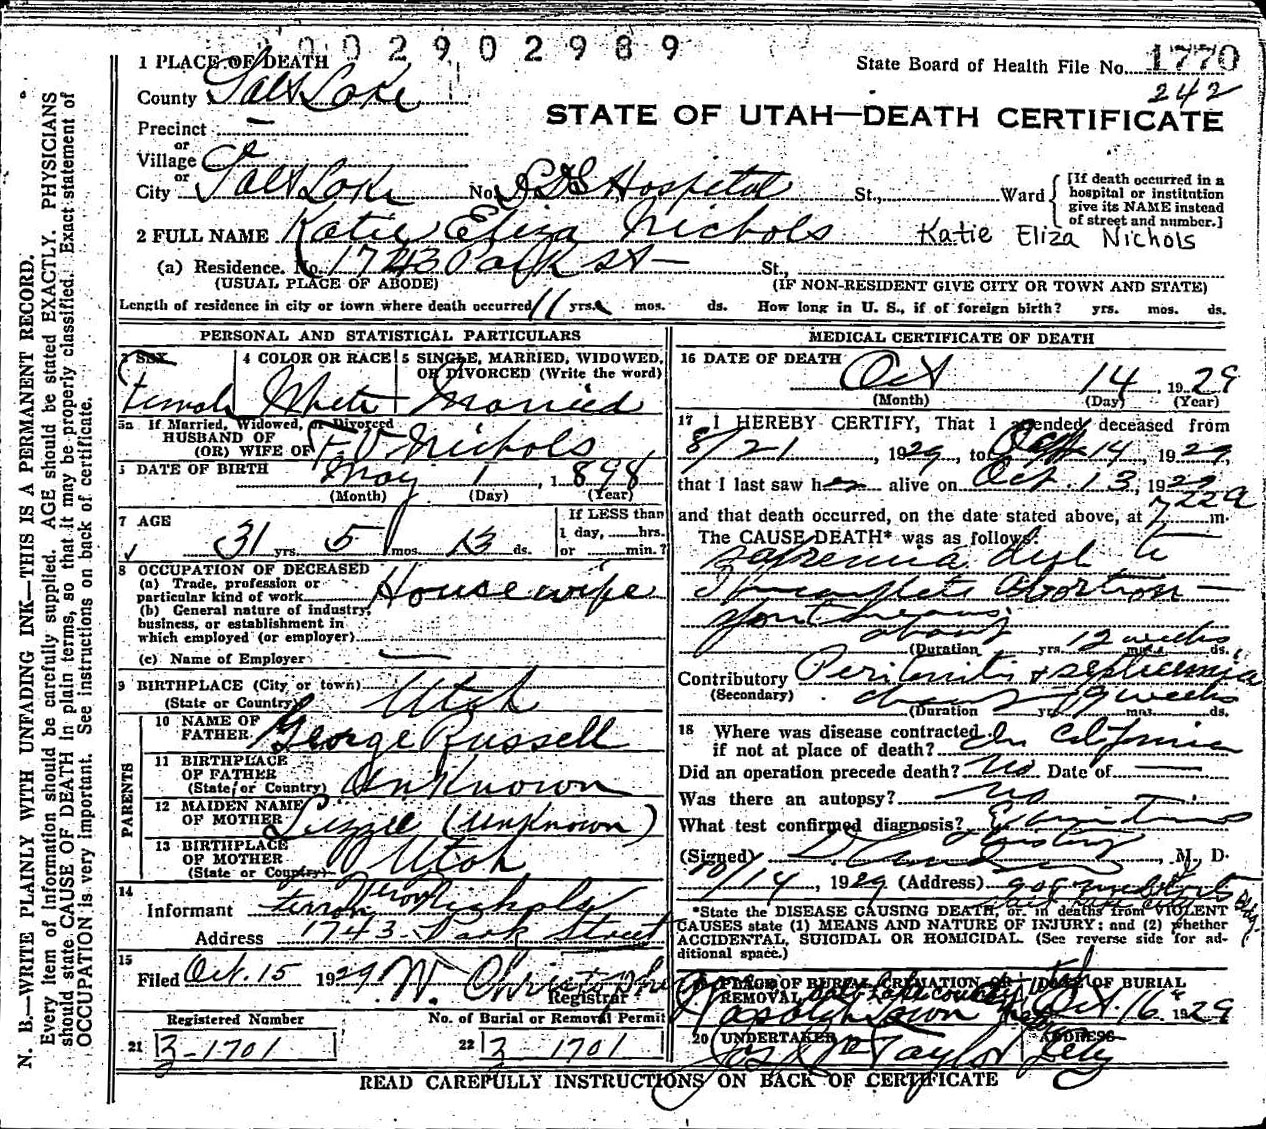 0 0 2 9 0 2 9 8 9
1770
1 PLACE OF DEATH
State Board of Health File No.
242
County Salt Lake
STATE OF UTAH—DEATH CERTIFICATE
Precinct —
or
Village
or
City Salt Lake No. LDS Hospital St., Ward
[If death occurred in a
hospital or institution
give its NAME instead
of street and number.]
2 FULL NAME Katie Eliza Nichols Katie Eliza Nichols
(a) Residence. No. 1743 Park St— St.,
(USUAL PLACE OF ABODE) (IF NON-RESIDENT GIVE CITY OR TOWN AND STATE)
Length of residence in city or town where death occurred 11 yrs. mos. ds. How long in U. S., if of foreign birth? yrs. mos. ds.
PERSONAL AND STATISTICAL PARTICULARS
3 SEX 4 COLOR OR RACE 5 SINGLE, MARRIED, WIDOWED,
OR DIVORCED (Write the word)
Female White Married
5a If Married, Widowed, or Divorced
HUSBAND OF
(OR) WIFE OF F. V. Nichols
6 DATE OF BIRTH May 1, 1898
(Month) (Day) (Year)
7 AGE
31 yrs. 5 mos. 13 ds.
If LESS than
1 day, hrs.
or min.?
8 OCCUPATION OF DECEASED
(a) Trade, profession or
particular kind of work Housewife
(b) General nature of industry,
business, or establishment in
which employed (or employer)
(c) Name of Employer —
9 BIRTHPLACE (City or town)
(State or Country) Utah
PARENTS
10 NAME OF
FATHER George Russell
11 BIRTHPLACE
OF FATHER
(State or Country) Unknown
12 MAIDEN NAME
OF MOTHER Lizzie (unknown)
13 BIRTHPLACE
OF MOTHER
(State or Country) Utah
14
Informant Nichols
Address 1743 Park Street
15
Filed Oct. 15 1929 W. Christopherson
Registrar
Registered Number No. of Burial or Removal Permit
21 3-1701 22 3 1701
MEDICAL CERTIFICATE OF DEATH
16 DATE OF DEATH
Oct 14, 1929
(Month) (Day) (Year)
17 I HEREBY CERTIFY, That I attended deceased from
8/21, 1929, to Oct 14, 1929,
that I last saw her alive on Oct. 13, 1929
and that death occurred, on the date stated above, at 7 22a m.
The CAUSE DEATH* was as follows:
Sapremia due to
Incomplete Abortion —
Spontaneous
about 12 weeks
(Duration yrs. mos. ds.
Contributory Peritonitis & septicemia
(Secondary) weeks
(Duration yrs. mos. ds.
18 Where was disease contracted
if not at place of death? In California
Did an operation precede death? No Date of —
Was there an autopsy? No
What test confirmed diagnosis?
(Signed) , M. D.
10/14, 1929 (Address)
*State the DISEASE CAUSING DEATH, or, in deaths from VIOLENT
CAUSES state (1) MEANS AND NATURE OF INJURY; and (2) whether
ACCIDENTAL, SUICIDAL OR HOMICIDAL. (See reverse side for ad-
ditional space.)
19 PLACE OF BURIAL, CREMATION OR DATE OF BURIAL
REMOVAL Salt Lake county Utah
Wasatch Lawn Oct 16 1929
20 UNDERTAKER ADDRESS
Taylor
READ CAREFULLY INSTRUCTIONS ON BACK OF CERTIFICATE
N. B.—WRITE PLAINLY WITH UNFADING INK—THIS IS A PERMANENT RECORD.
Every item of information should be carefully supplied. AGE should be stated EXACTLY. PHYSICIANS
should state CAUSE OF DEATH in plain terms, so that it may be properly classified. Exact statement of
OCCUPATION is very important. See instructions on back of certificate.